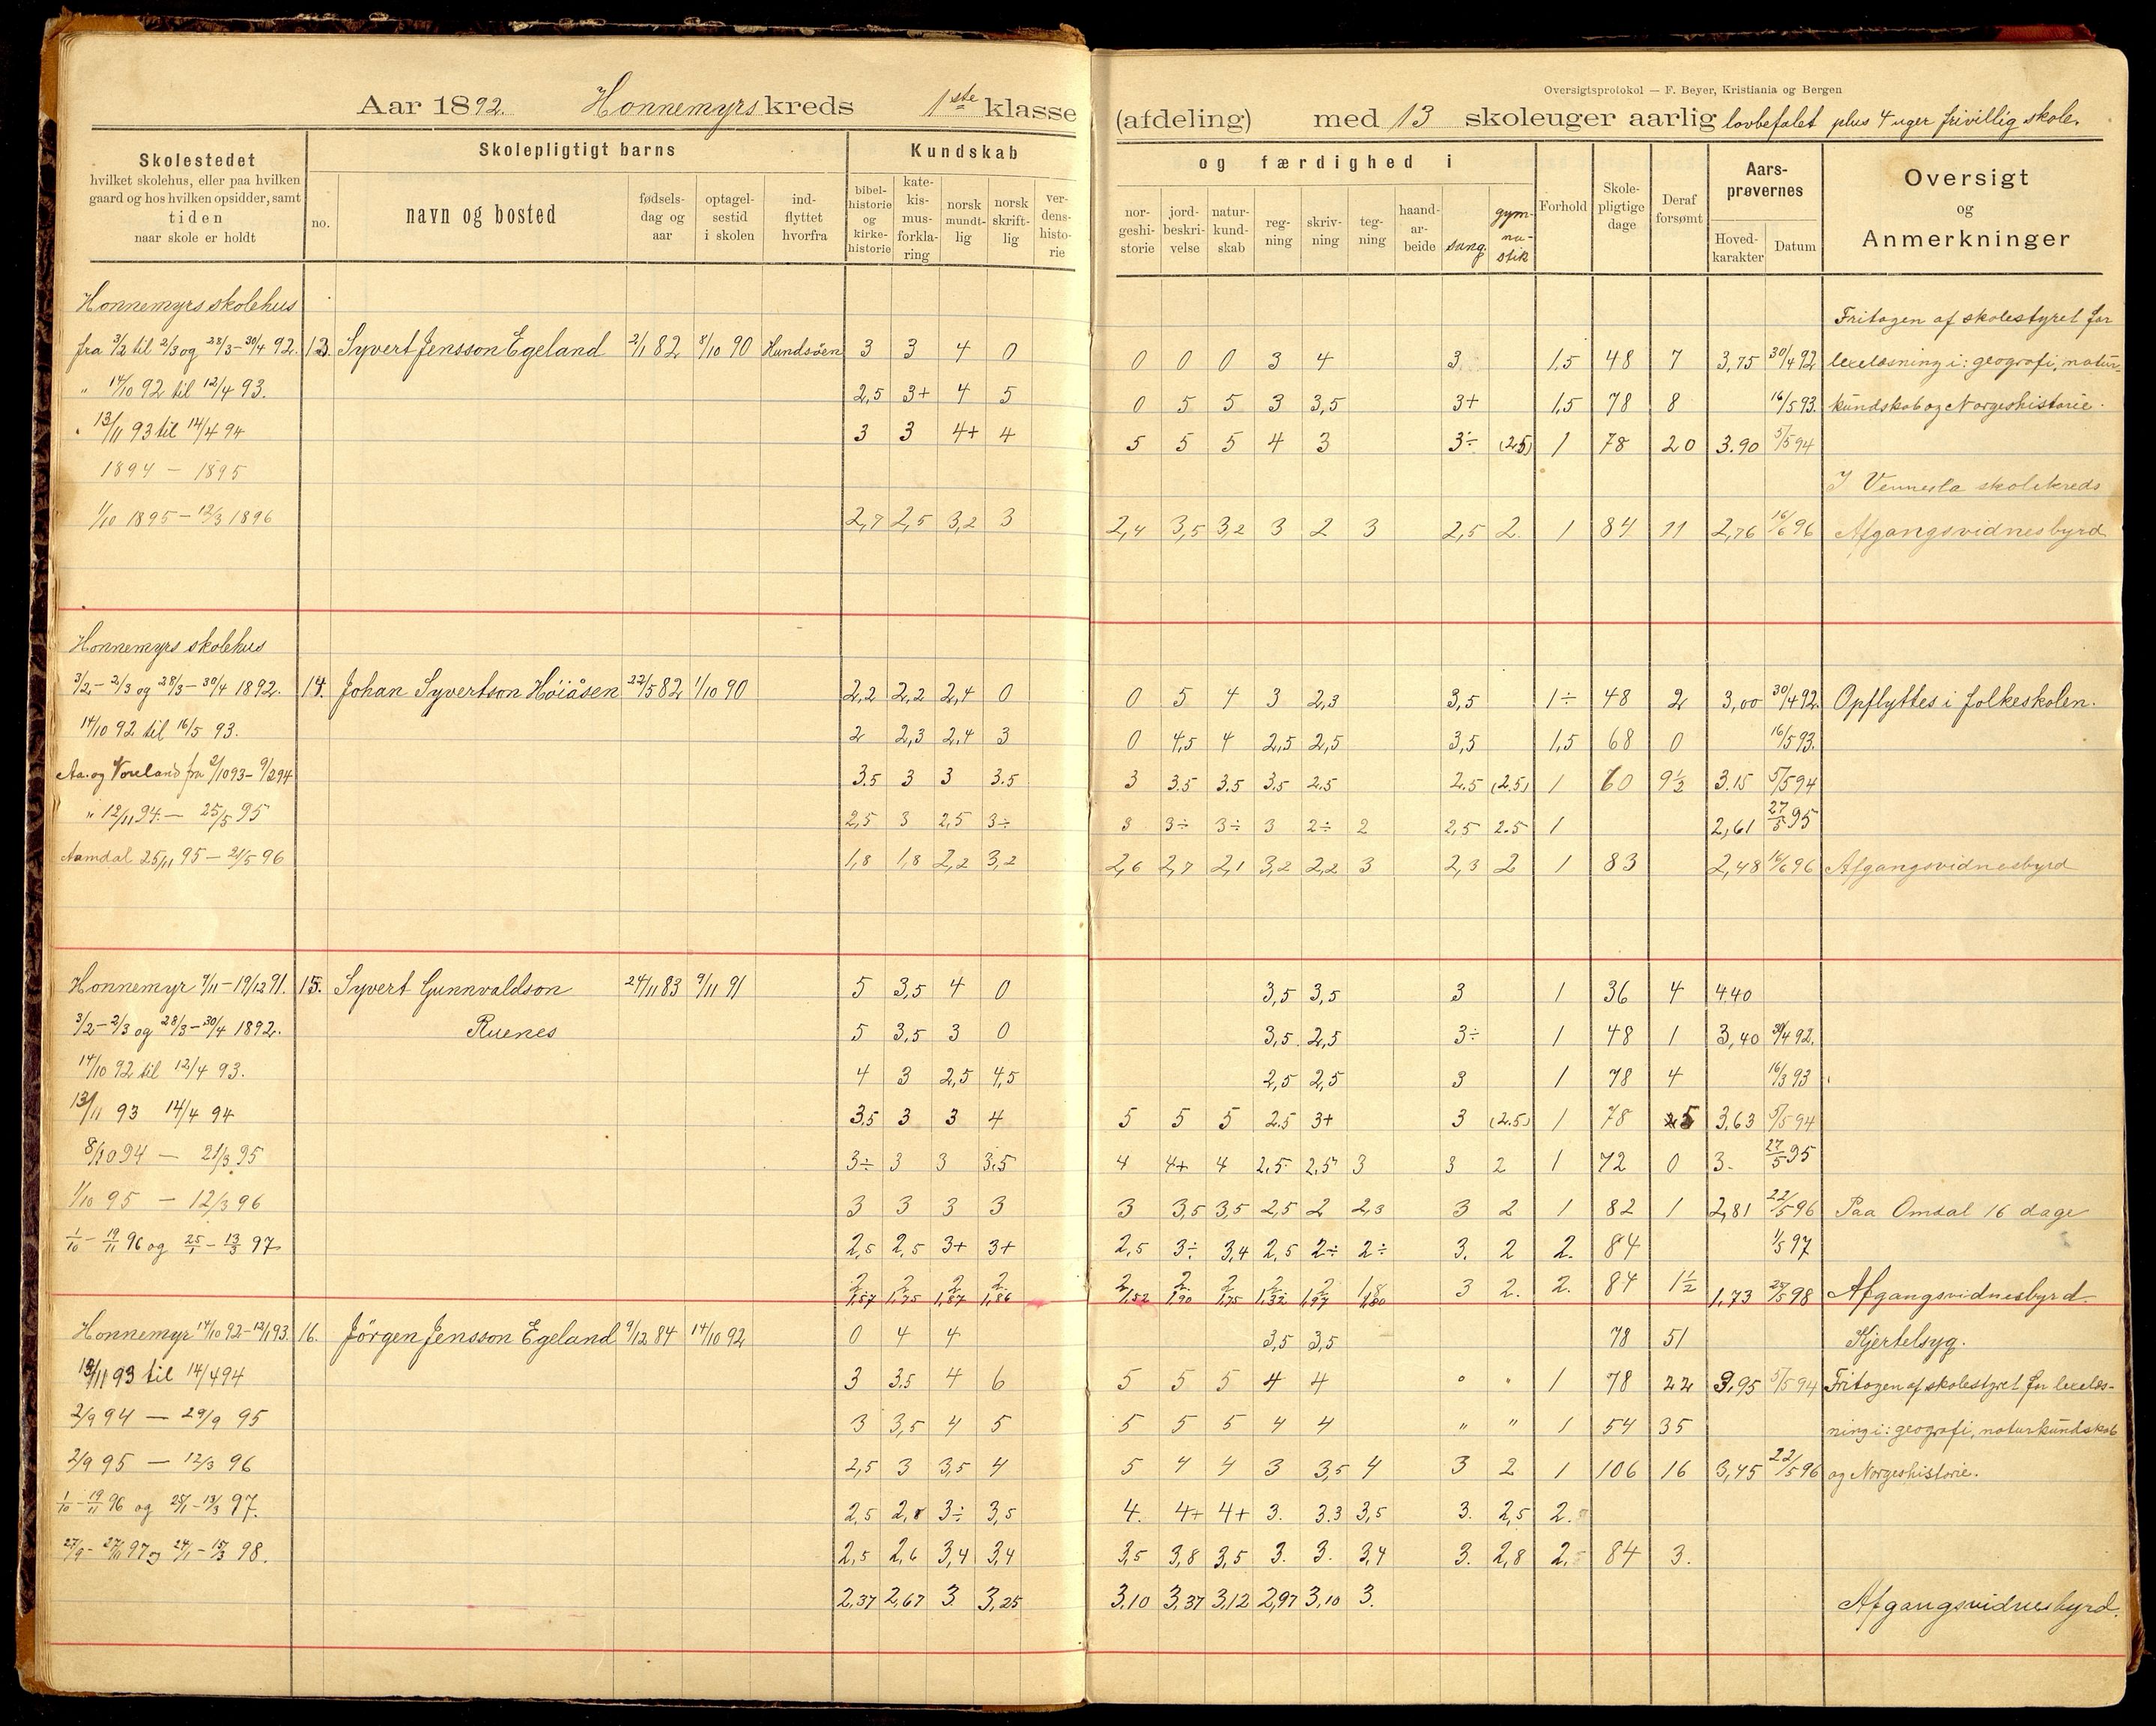 Oversigtsprotokol — F. Beyer, Kristiania og Bergen
Aar 1892. Honnemyrs kreds 1ste klasse (afdeling) med 13 skoleuger aarlig lovbefalet plus 4 uger frivillig skole.
Skolestedet
hvilket skolehus, eller paa hvilken
gaard og hos hvilken opsidder, samt
tiden
naar skole er holdt
Skolepligtigt barns
no.
navn og bosted
fødsels-
dag og
aar
optagel-
sestid
i skolen
ind-
flyttet
hvorfra
Kundskab
bibel-
historie
og
kirke-
historie
kate-
kis-
mus-
forkla-
ring
norsk
mundt-
lig
norsk
skrift-
lig
ver-
dens-
histo-
rie
og færdighed i
nor-
geshi-
storie
jord-
beskri-
velse
natur-
kund-
skab
reg-
ning
skriv-
ning
teg-
ning
haand-
ar-
beide
sang.
gym-
na-
stik
Forhold
Skole-
pligtige
dage
Deraf
forsømt
Aars-
prøverne
Hoved-
karakter
Datum
Oversigt
og
Anmerkninger
Honnemyrs skolehus
Fritagen af skolestyret for
fra 3/2 til 2/3 og 28/3 - 30/4 92. 13. Syvert Jensson Egeland 2/1 82 8/10 90 Hundsöen 3 3 4 0 0 0 0 3 4 3 1,5 48 7 3,75 30/4 92 lexelæsning i: geografi, natur-
" 14/10 92 til 12/4 93. 2,5 3+ 4 5 0 5 5 3 3,5 3+ 1,5 78 8 16/5 93. kundskab og Norgeshistorie.
" 13/11 93 til 14/4 94 3 3 4+ 4 5 5 5 4 3 3÷ (2.5) 1 78 20 3.90 5/5 94
1894 - 1895 I Vennesla skolekreds
1/10 1895 - 12/3 1896 2,7 2,5 3,2 3 2,4 3,5 3,2 3 2 3 2,5 2. 1 84 11 2,76 16/6 96 Afgangsvidnesbyrd.
Honnemyrs skolehus
3/2 - 2/3 og 28/3 - 30/4 1892. 14. Johan Syvertson Höiåsen 22/5 82 1/10 90 2,2 2,2 2,4 0 0 5 4 3 2,3 3,5 1÷ 48 2 3,00 30/4 92. Opflyttes i folkeskolen.
14/10 92 til 16/5 93. 2 2,3 2,4 3 0 4,5 4 2,5 2,5 3,5 1,5 68 0 16/5 93.
Aa. og Voreland fra 2/10 93 - 9/2 94 3.5 3 3 3.5 3 3.5 3.5 3.5 2.5 2.5 (2.5) 1 60 9½ 3.15 5/5 94
" 12/11 94. - 25/5 95 2,5 3 2,5 3÷ 3 3÷ 3÷ 3 2÷ 2 2,5 2.5 1 2,61 27/5 95
Aamdal 25/11 95 - 21/5 96 1,8 1,8 2,2 3,2 2,6 2,7 2,1 3,2 2,2 3 2,3 2 1 83 2,48 16/6 96 Afgangsvidnesbyrd
Honnemyr 9/11 - 19/12 91. 15. Syvert Gunnvaldson 24/11 83 9/11 91 5 3,5 4 0 3,5 3,5 3 1 36 4 4.40
3/2 - 2/3 og 28/3 - 30/4 1892. Ruenes 5 3,5 3 0 3,5. 2,5 3÷ 1 48 1 3,40 30/4 92.
14/10 92 til 12/4 93. 4 3 2,5 4,5 2,5 2,5 3 1 78 4 16/3 93
13/11 93 14/4 94 3,5 3 3 4 5 5 5 2.5 3+ 3 (2.5) 1 78 5 3.63 5/5 94
8/10 94 - 21/3 95 3÷ 3 3 3,5 4 4+ 4 2,5 2,5 3 3 2 1 72 0 3. 27/5 95
1/10 95 - 12/3 96 3 3 3 3 3 3,5 3,5 2,5 2 2,3 3 2 1 82 1 2,81 22/5 96 Paa Omdal 16 dage
1/10 - 19/11 96 og 25/1 - 13/3 97 2,5 2,5 3+ 3+ 2,5 3÷ 3,4 2,5 2÷ 2÷ 3. 2 2. 84 1/5 97
2 2 2 2 2 2 2 2 2 3 2. 2. 84 1½ 1,73 25/5 98 Afgangsvidnesbyrd.
1,57 1,75 1,87 1,86 1,52 1,90 1,75 1,32 1,97 1,80
Honnemyr 14/10 92 - 12/4 93. 16. Jörgen Jensson Egeland 9/12 84 14/10 92 0 4 4 3,5 3,5 78 51 Kjertelsyg.
13/11 93 til 14/4 94 3 3.5 4 6 5 5 5 4 4 " " 1 78 22 3,95 5/5 94 Fritagen af skolestyret for lexelæs-
2/9 94 - 29/9 95 3 3,5 4 5 5 5 5 4 4 " " 1 54 35 ning i: geografi, naturkundskab
2/9 95 - 12/3 96 2,5 3 3,5 4 5 4 4 3 3,5 4 3 2 1 106 16 3,45 22/5 96 og Norgeshistorie.
1/10 - 19/11 96 og 25/1 - 13/3 97. 2,5 2,8 3÷ 3,5 4. 4+ 4+ 3. 3.3 3,5 3. 2,5 2.
27/9 - 27/11 97 og 24/1 - 15/3 98. 2,5 2,6 3,4 3,4 3,5 3,8 3,5 3. 3. 3,4 3. 2,8 2. 84 3.
2,37 2,67 3. 3,25 3,10 3,37 3,12 2,97 3,10 3. Afgangsvidnesbyrd.